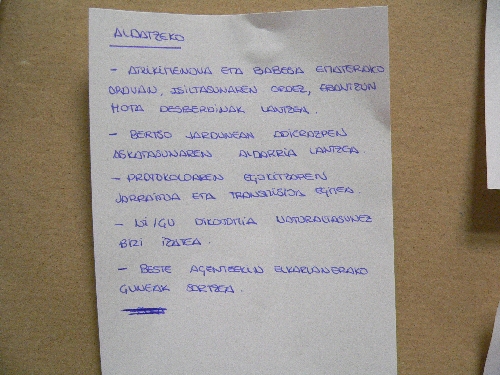 ALDATZEKO
- ATXIKIMENDUA ETA BABESA EMATERAKO
ORDUAN, ISILTASUNAREN ORDEZ, ERANTZUN
MOTA DESBERDINAK LANTZEA.
- BERTSO JARDUNEAN ADIERAZPEN
ASKATASUNAREN ALDARRIA LANTZEA
- PROTOKOLOAREN EGOKITZAREN
JARRAIPENA ETA TRANSMISIOA EGITEA.
- NI/GU DIKOTOMIA NATURALTASUNEZ
BIZI IZATEA.
- BESTE AGENTEEKIN ELKARLANERAKO
GUNEAK SORTZEA.